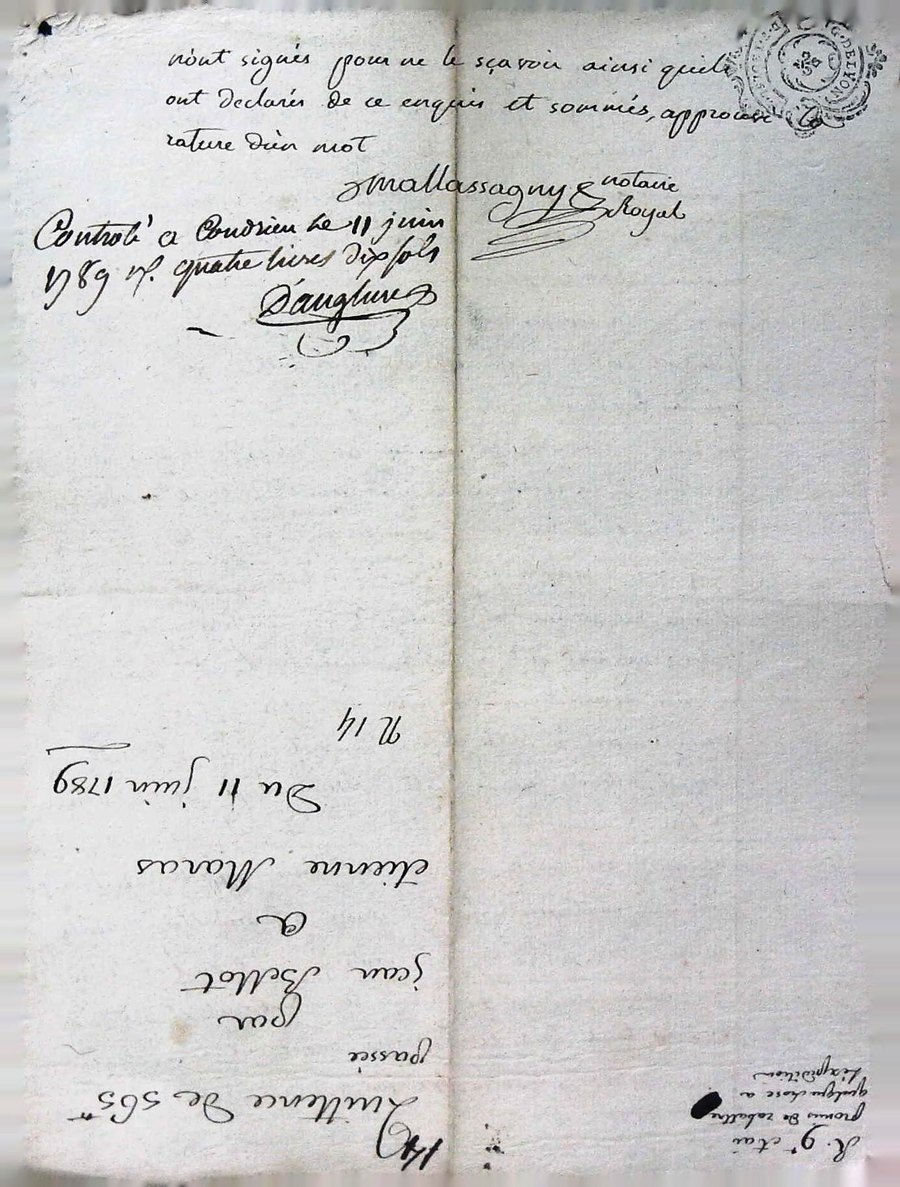 n'ont signés pour ne le sçavoir ainsi quils
ont declarés de ce enquis et sommés, approuvé la
rature d'un mot
Mallassagny notaire
Royal
Controlé a Condrieu le 11 juin
1789 rs. quatre livres dix sols
Dauglure
G. DE LYON
N 14
Du 11 juin 1789
etienne Maras
a
jean Bellot
par
passée
Quittence De 565 tt
149
promis de rabattre
quelque chose a
l'expedition